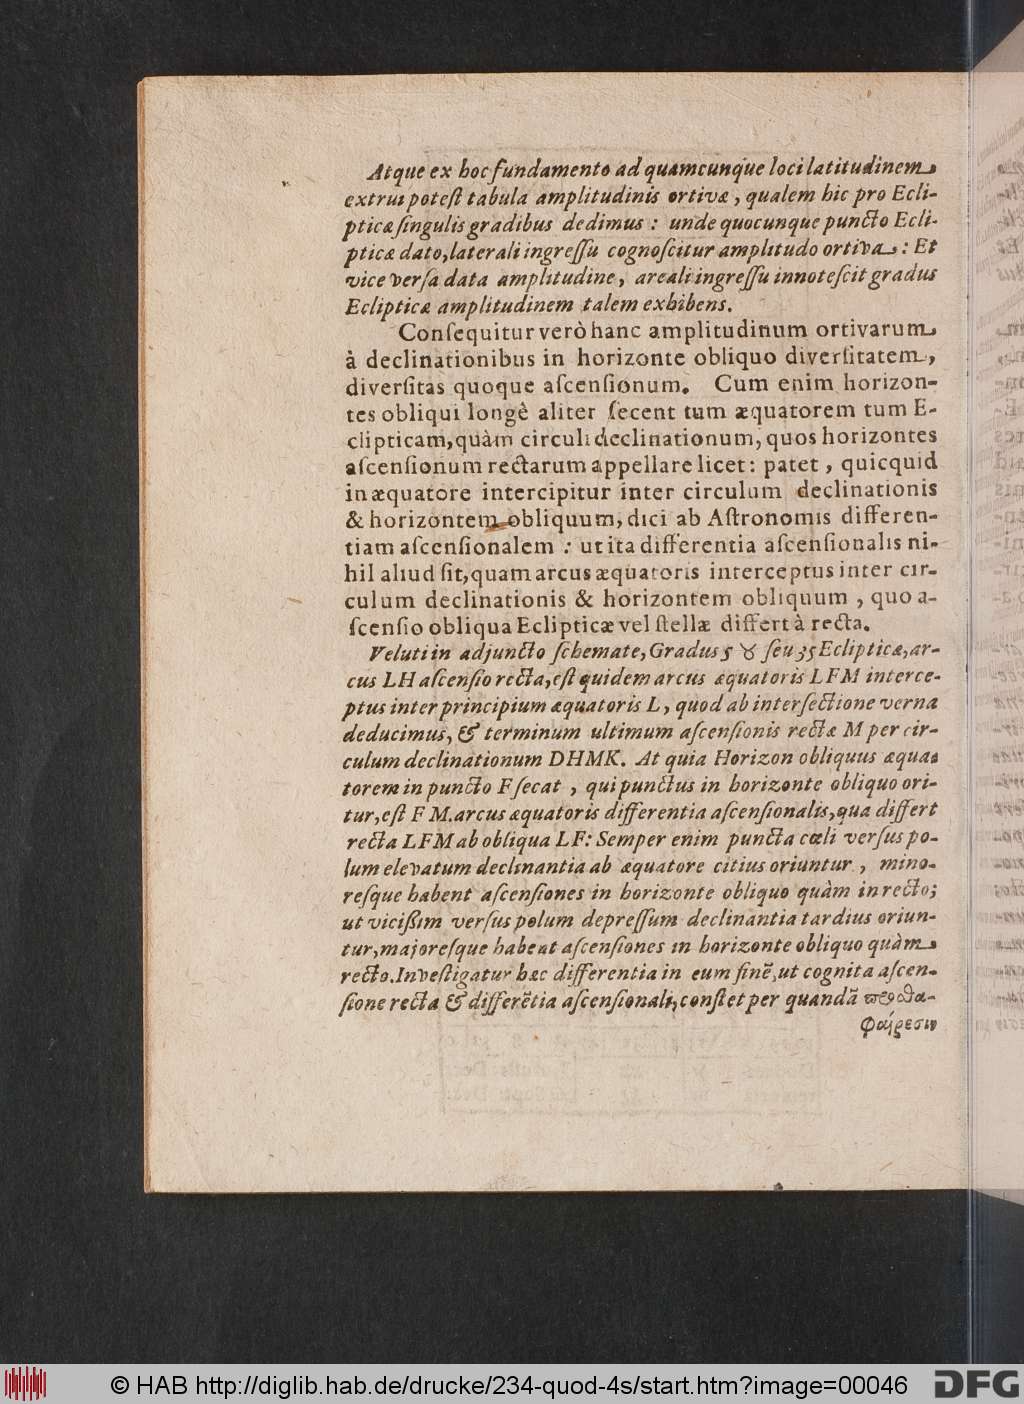 Atque ex hoc fundamento ad quamcunque loci latitudinem
extrui potest tabula amplitudinis ortivæ, qualem hic pro Ecli-
pticæ ſingulis gradibus dedimus: unde quocunque puncto Ecli-
pticæ dato, laterali ingreſſu cognoſcitur amplitudo ortiva: Et
vice verſa data amplitudine, areali ingreſſu innoteſcit gradus
Eclipticæ amplitudinem talem exhibens.
Conſequitur verò hanc amplitudinum ortivarum
à declinationibus in horizonte obliquo diverſitatem,
diverſitas quoque aſcenſionum. Cum enim horizon-
tes obliqui longè aliter ſecent tum æquatorem tum E-
clipticam, quàm circuli declinationum, quos horizontes
aſcenſionum rectarum appellare licet: patet, quicquid
in æquatore intercipitur inter circulum declinationis
& horizontem obliquum, dici ab Aſtronomis differen-
tiam aſcenſionalem: ut ita differentia aſcenſionalis ni-
hil aliud ſit, quam arcus æquatoris interceptus inter cir-
culum declinationis & horizontem obliquum, quo a-
ſcenſio obliqua Eclipticæ vel ſtellæ differt à recta.
Veluti in adjuncto ſchemate, Gradus 5 ♉ ſeu 35 Eclipticæ, ar-
cus LH aſcenſio recta, eſt quidem arcus æquatoris LFM interce-
ptus inter principium æquatoris L, quod ab interſectione verna
deducimus, & terminum ultimum aſcenſionis rectæ M per cir-
culum declinationum DHMK. At quia Horizon obliquus æqua-
torem in puncto F ſecat, qui punctus in horizonte obliquo ori-
tur, eſt F M. arcus æquatoris differentia aſcenſionalis, qua differt
recta LFM ab obliqua LF: Semper enim puncta cœli verſus po-
lum elevatum declinantia ab æquatore citius oriuntur, mino-
reſque habent aſcenſiones in horizonte obliquo quàm in recto;
ut viciſſim verſus polum depreſſum declinantia tardius oriun-
tur, majoreſque habent aſcenſiones in horizonte obliquo quàm
recto. Inveſtigatur hæc differentia in eum finē, ut cognita aſcen-
ſione recta & differētia aſcenſionali, conſtet per quandā προσθα-
φαίρεσιν
© HAB http://diglib.hab.de/drucke/234-quod-4s/start.htm?image=00046
DFG